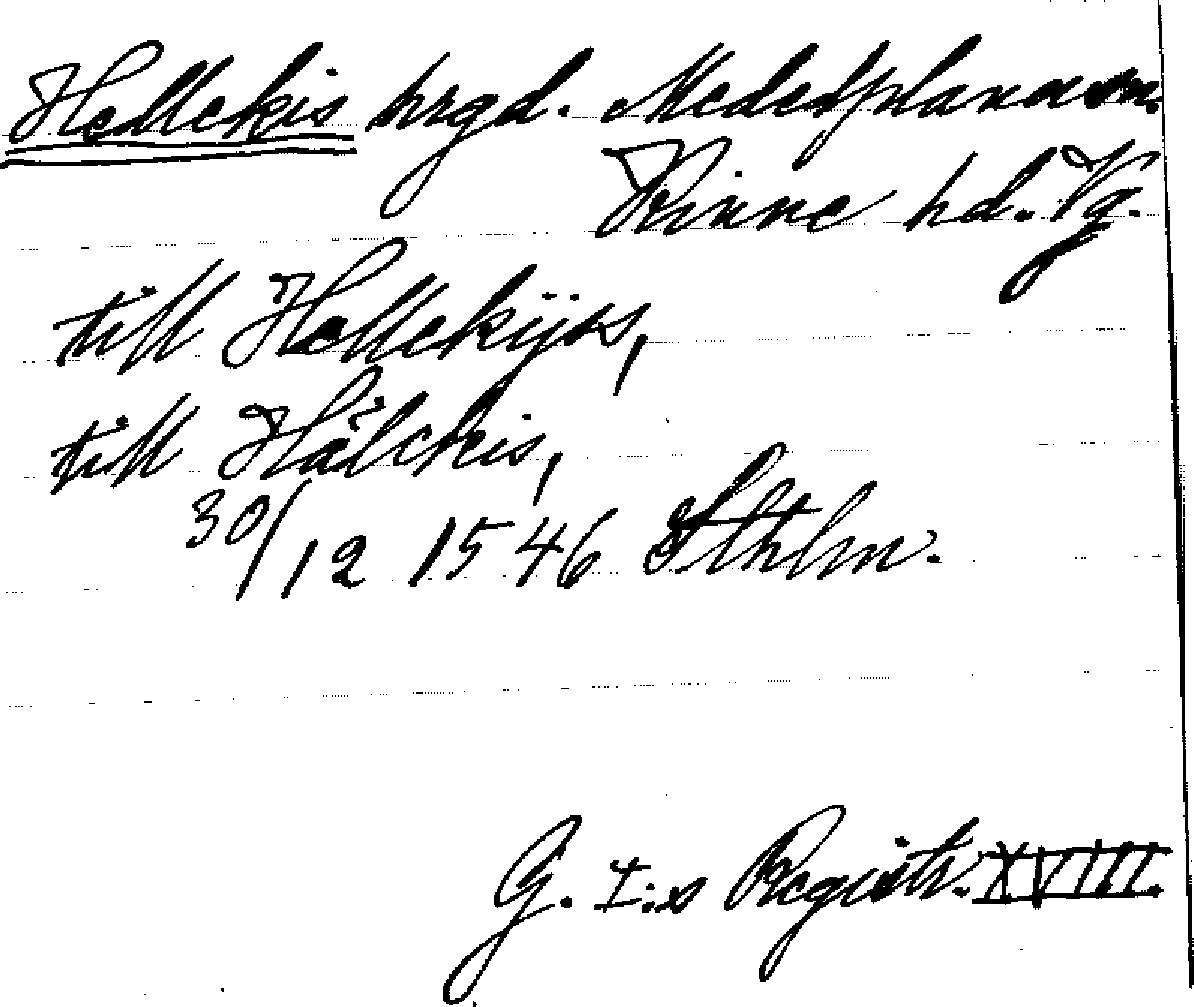 Hellekis hrgd. Medelplana sn.
Kinne hd. Vg.
till Hellekijss,
till Hälckis,
30/12 1546 Sthlm.
G. I:s Registr. XVIII.